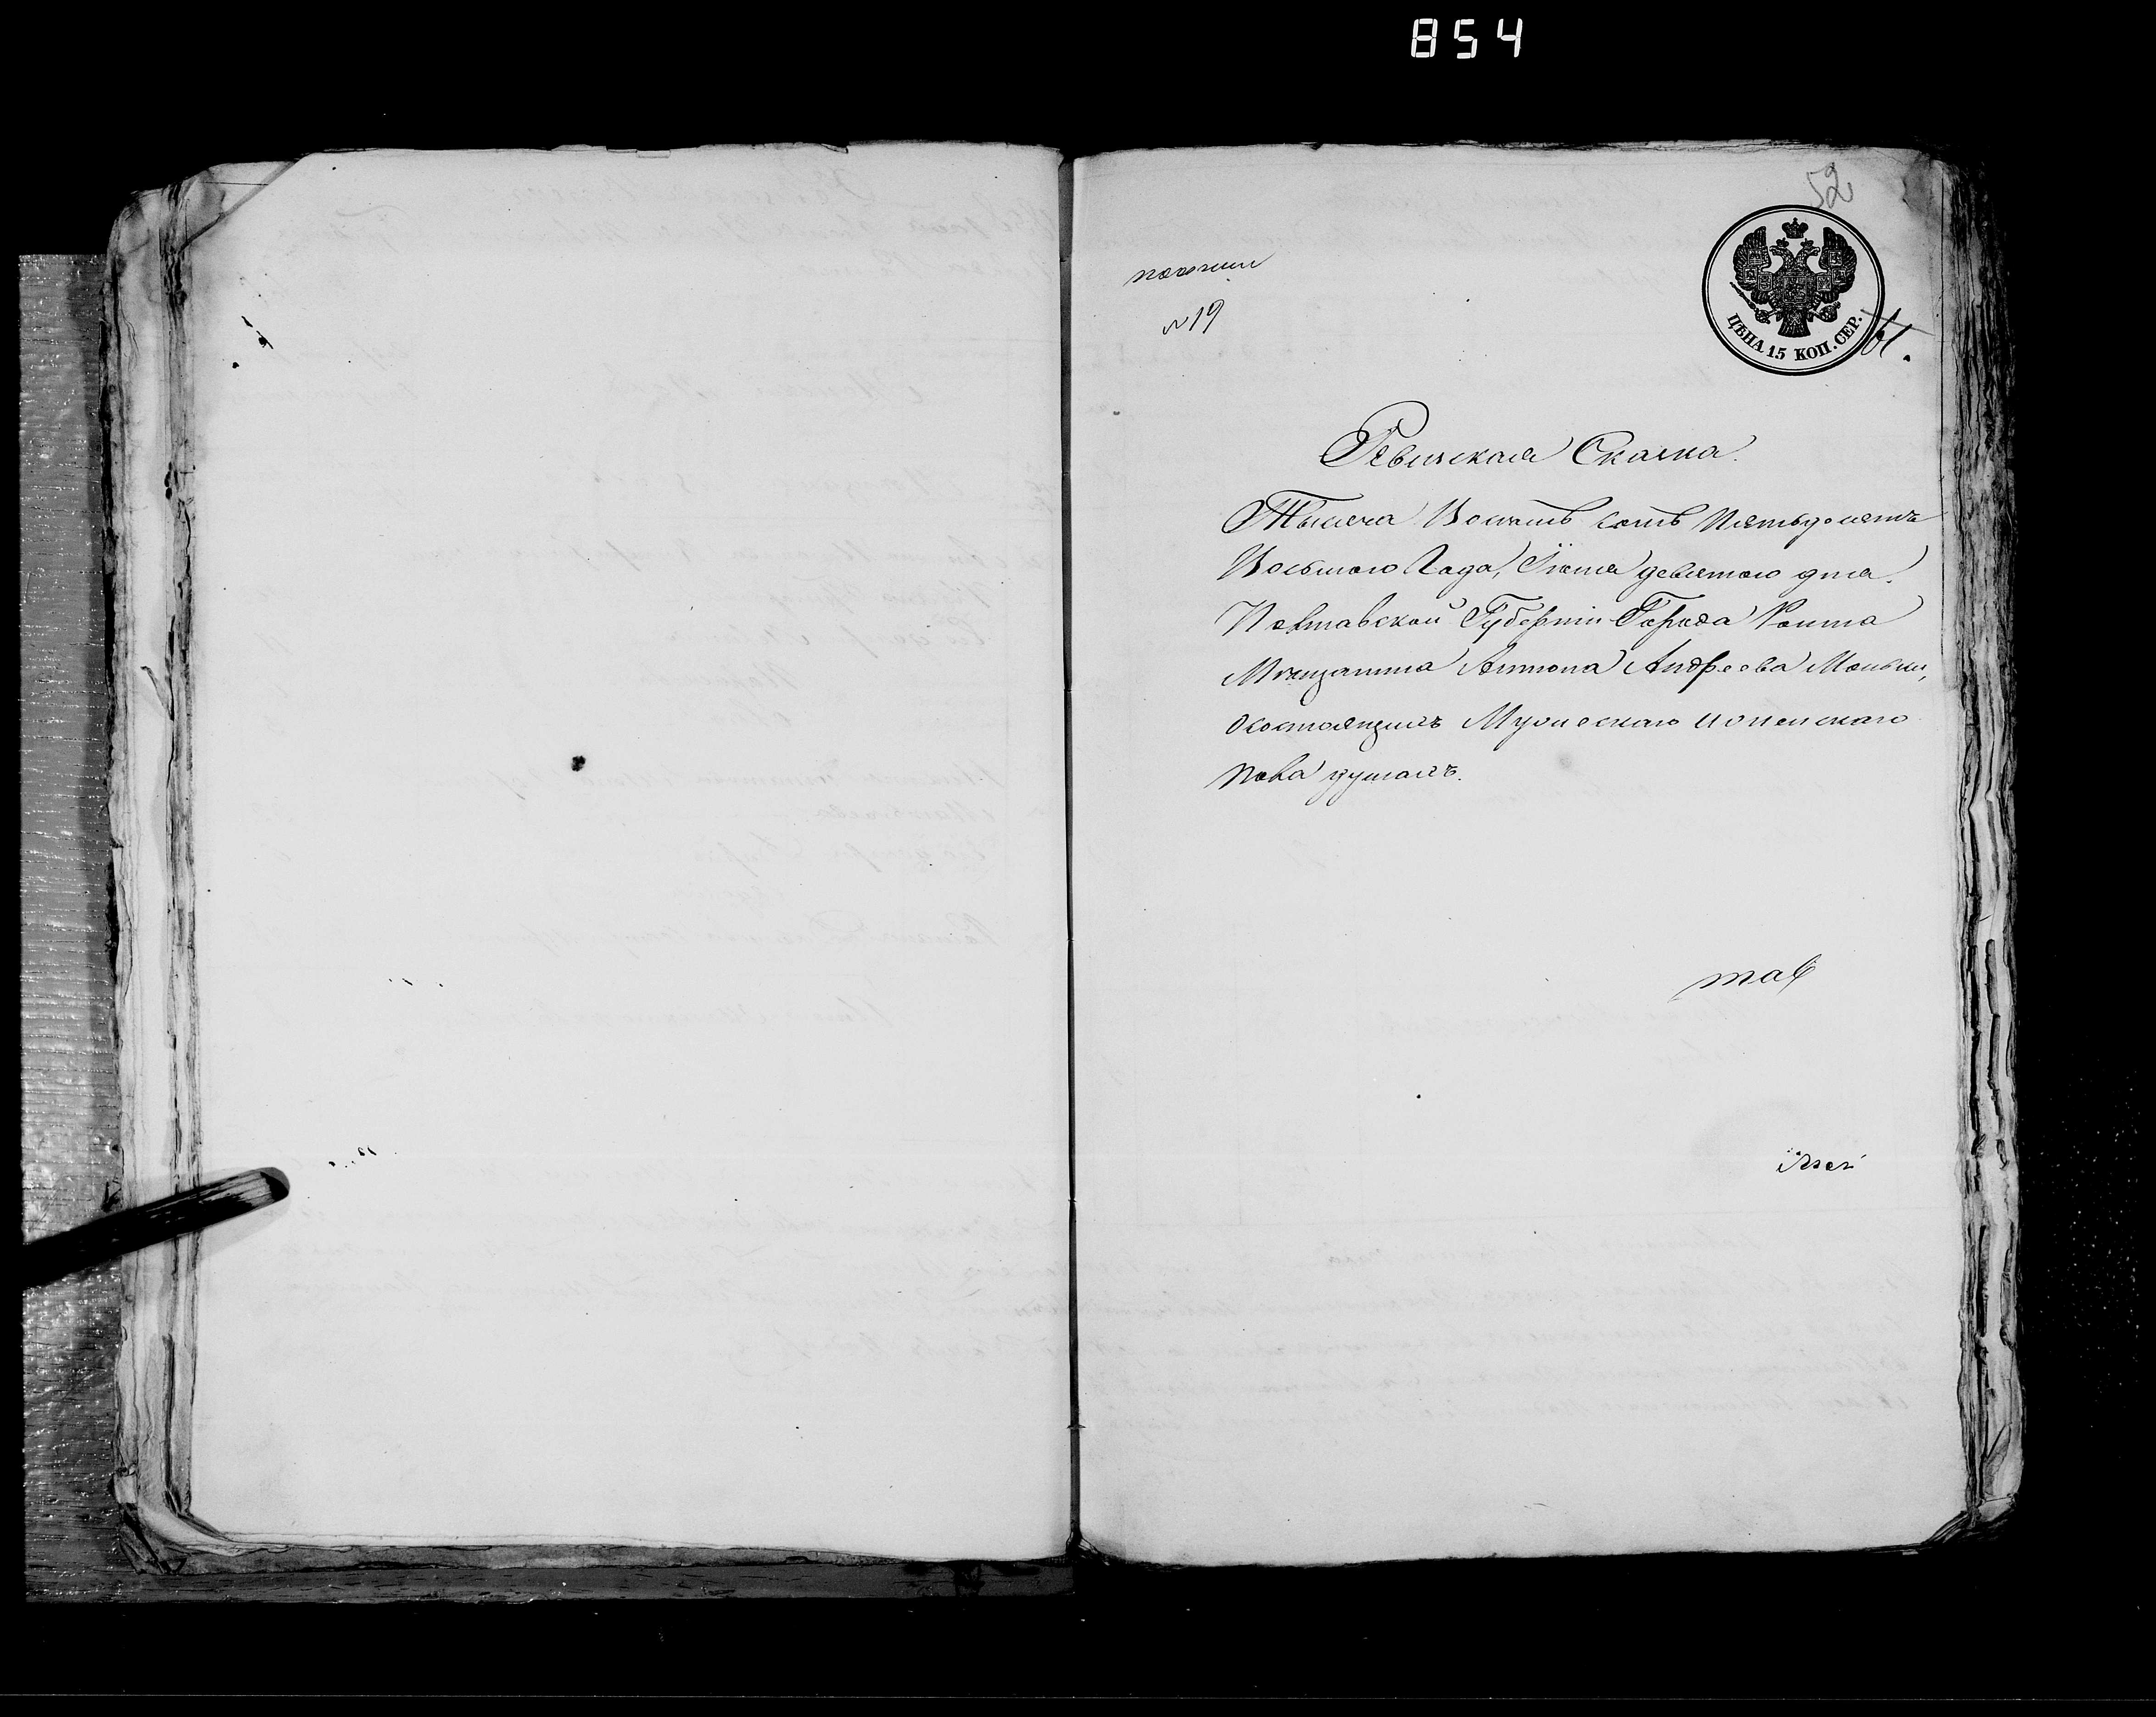 854
52
ЦѢНА 15 КОП. СЕР.
61.
№ 19
Ревизская Сказка.
Тысяча Восемь сотъ Пятьдесятъ
Восьмого Года, Іюня девятого дня.
Полтавской Губерніи Города Ромна
Мѣщанина Антона Андреева
о состоящихъ Мужескаго и женскаго
пола душахъ.